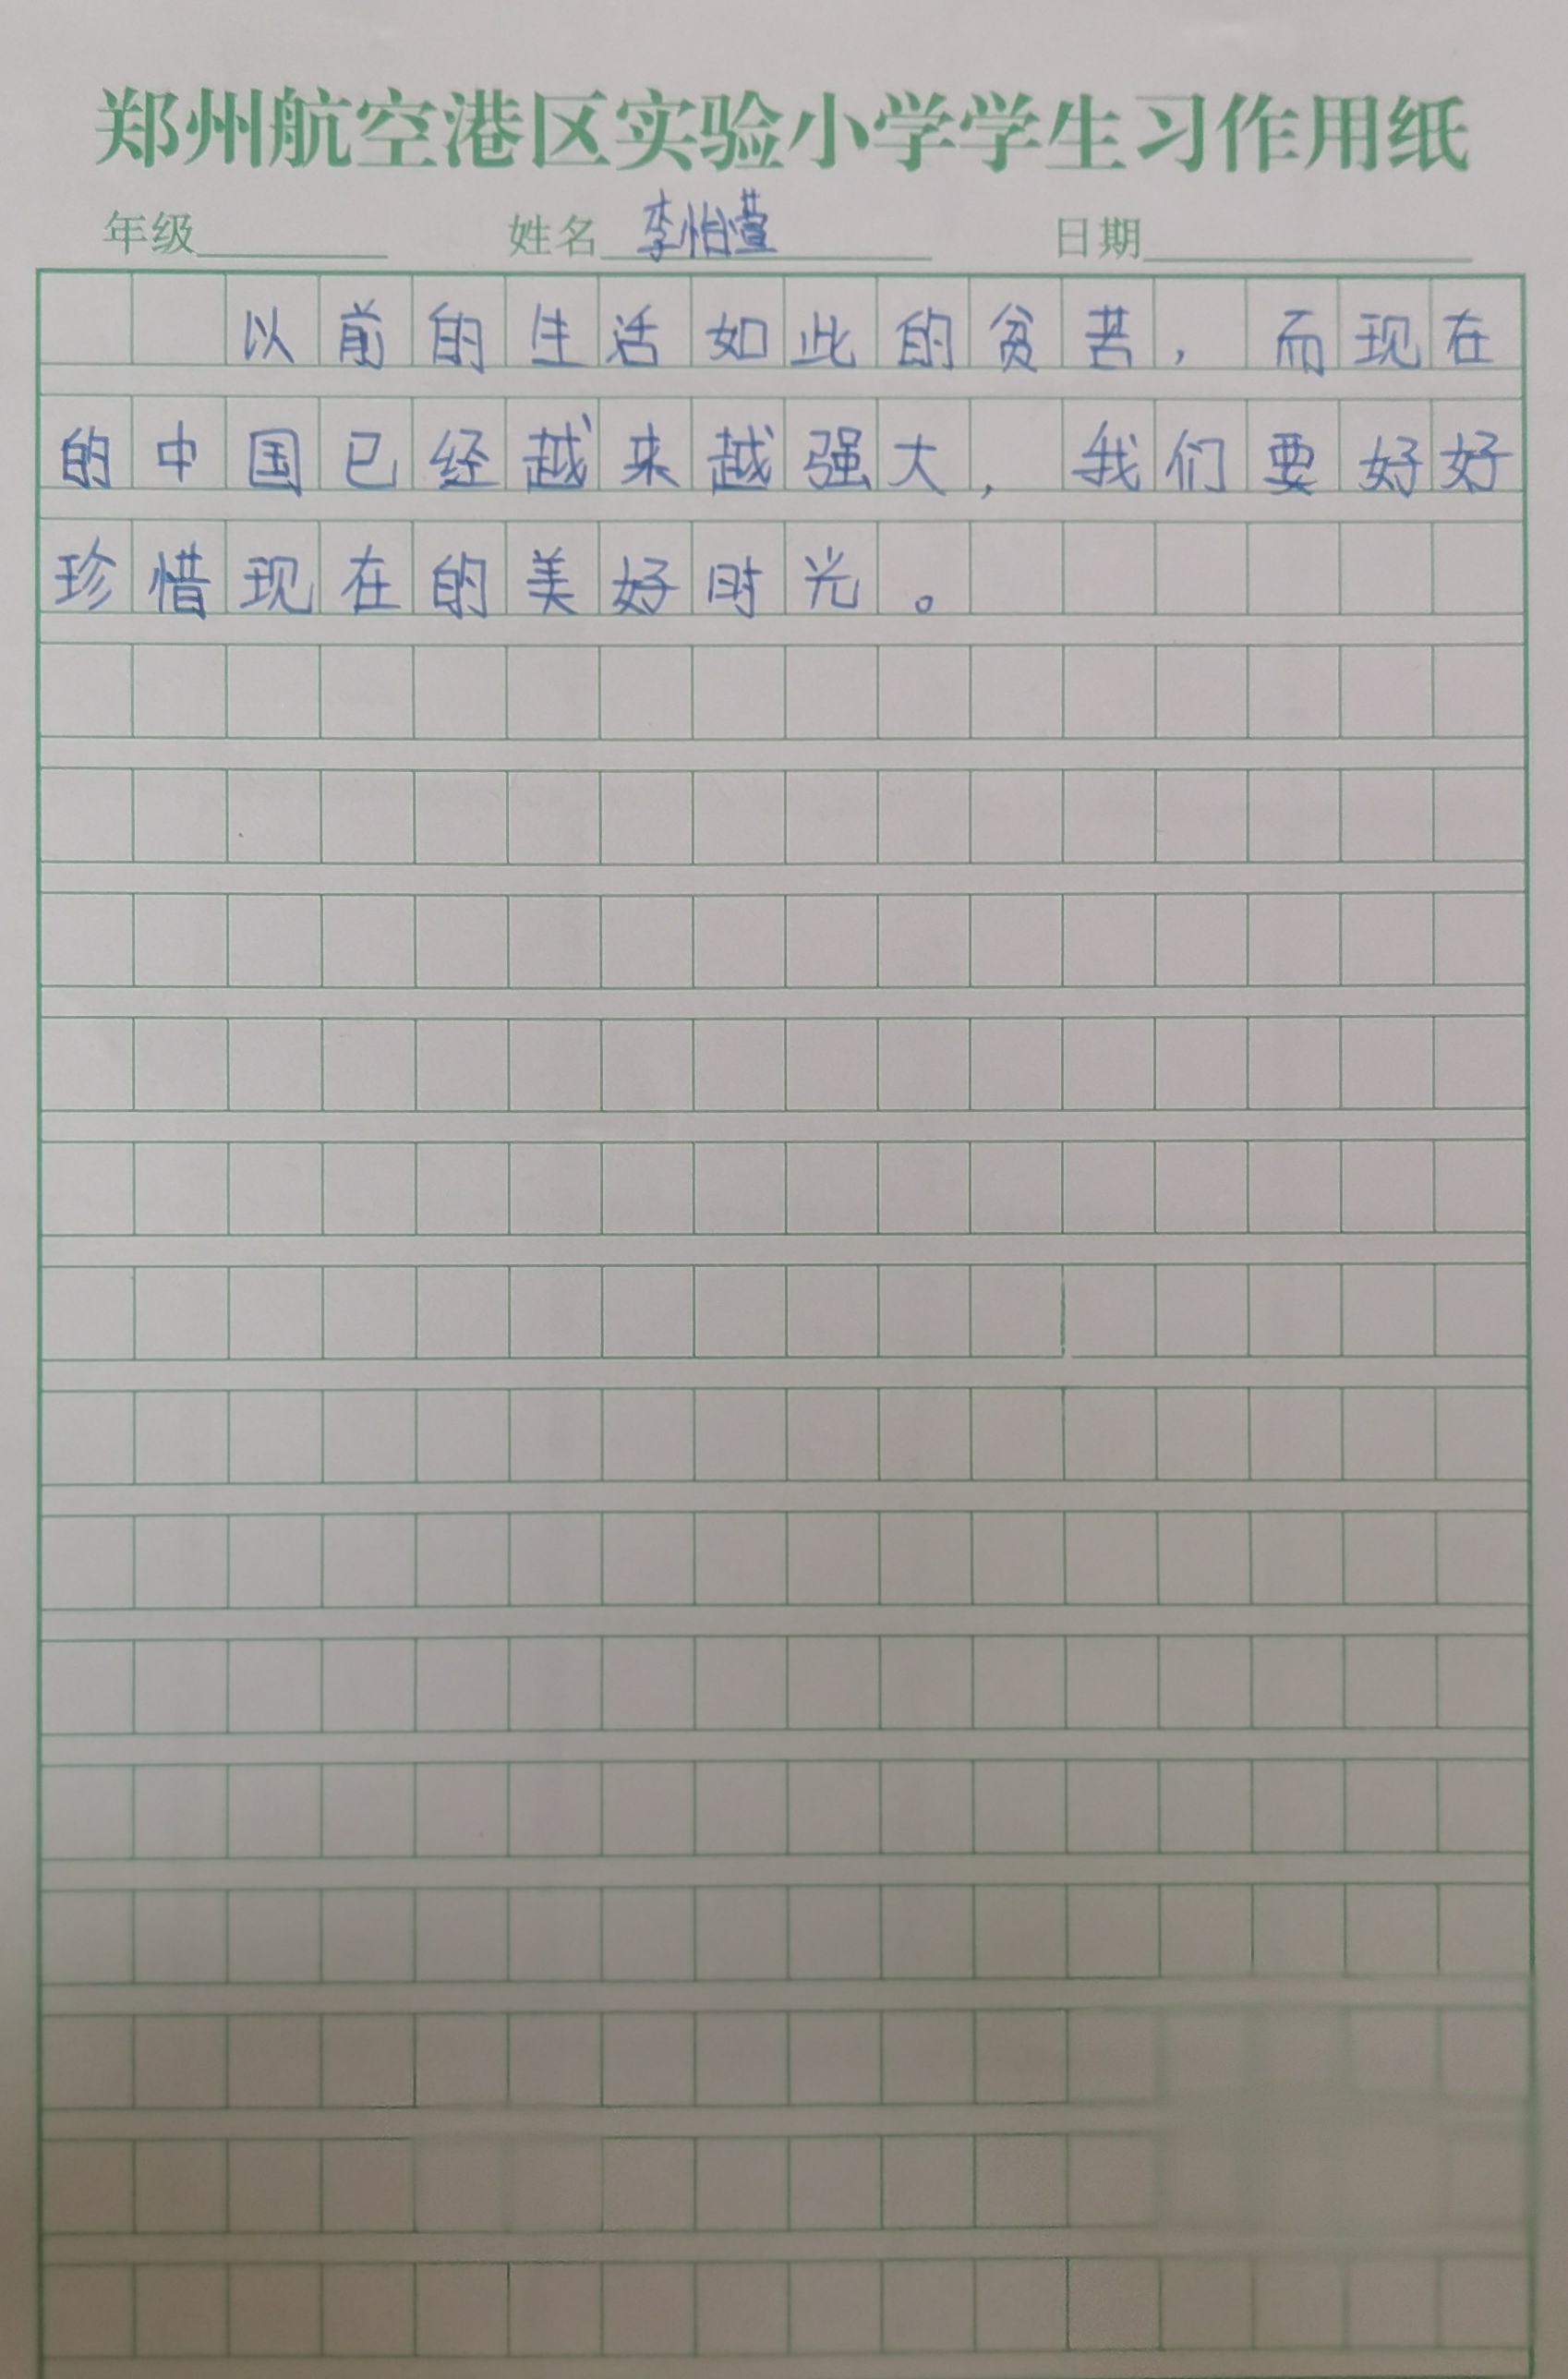 郑州航空港区实验小学学生习作用纸
年级 姓名 李怡萱 日期
以前的生活如此的贫苦，而现在
的中国已经越来越强大，我们要好好
珍惜现在的美好时光。